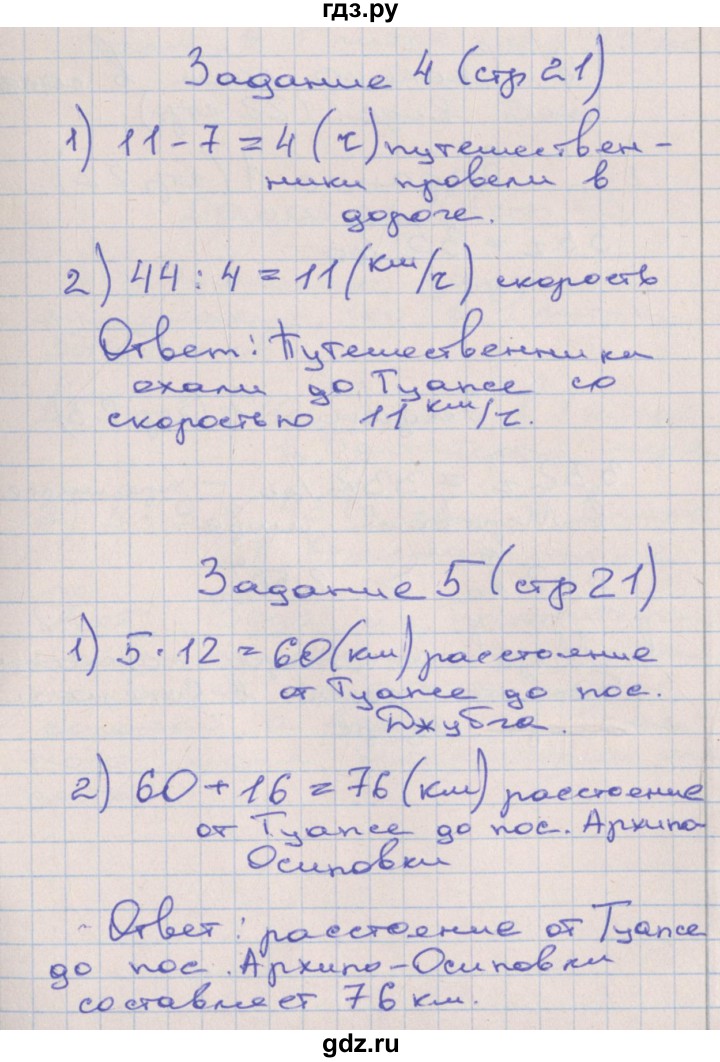 гдз.ру
Задание 4 (стр 21)
1) 11 - 7 = 4 (ч) путешествен-
ники провели в
дороге.
2) 44 : 4 = 11 (км/ч) скорость
Ответ: Путешественники
ехали до Туапсе со
скоростью 11 км/ч.
Задание 5 (стр 21)
1) 5 · 12 = 60 (км) расстояние
от Туапсе до пос.
Джубга.
2) 60 + 16 = 76 (км) расстояние
от Туапсе до пос. Архипо-
Осиповки
Ответ: расстояние от Туапсе
до пос. Архипо-Осиповки
составляет 76 км.
gdz.ru